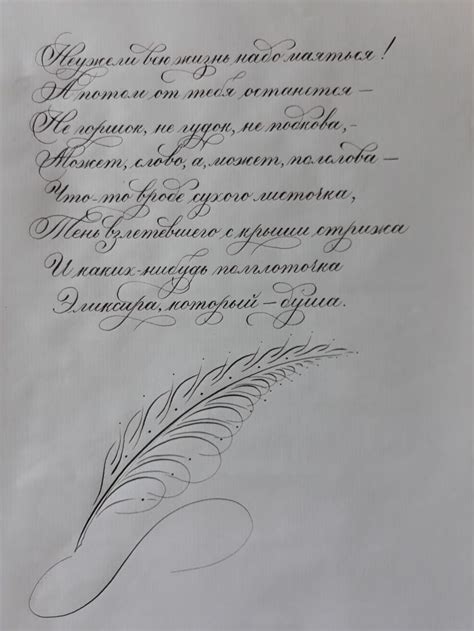 Неужели всю жизнь надо маяться!
А потом от тебя останется —
Не горшок, не гудок, не подкова, -
Может, слово, а, может, полслова —
Что-то вроде сухого листочка,
Тень взлетевшего с крыши стрижа
И каких-нибудь полглоточка
Эликсара, который — душа.